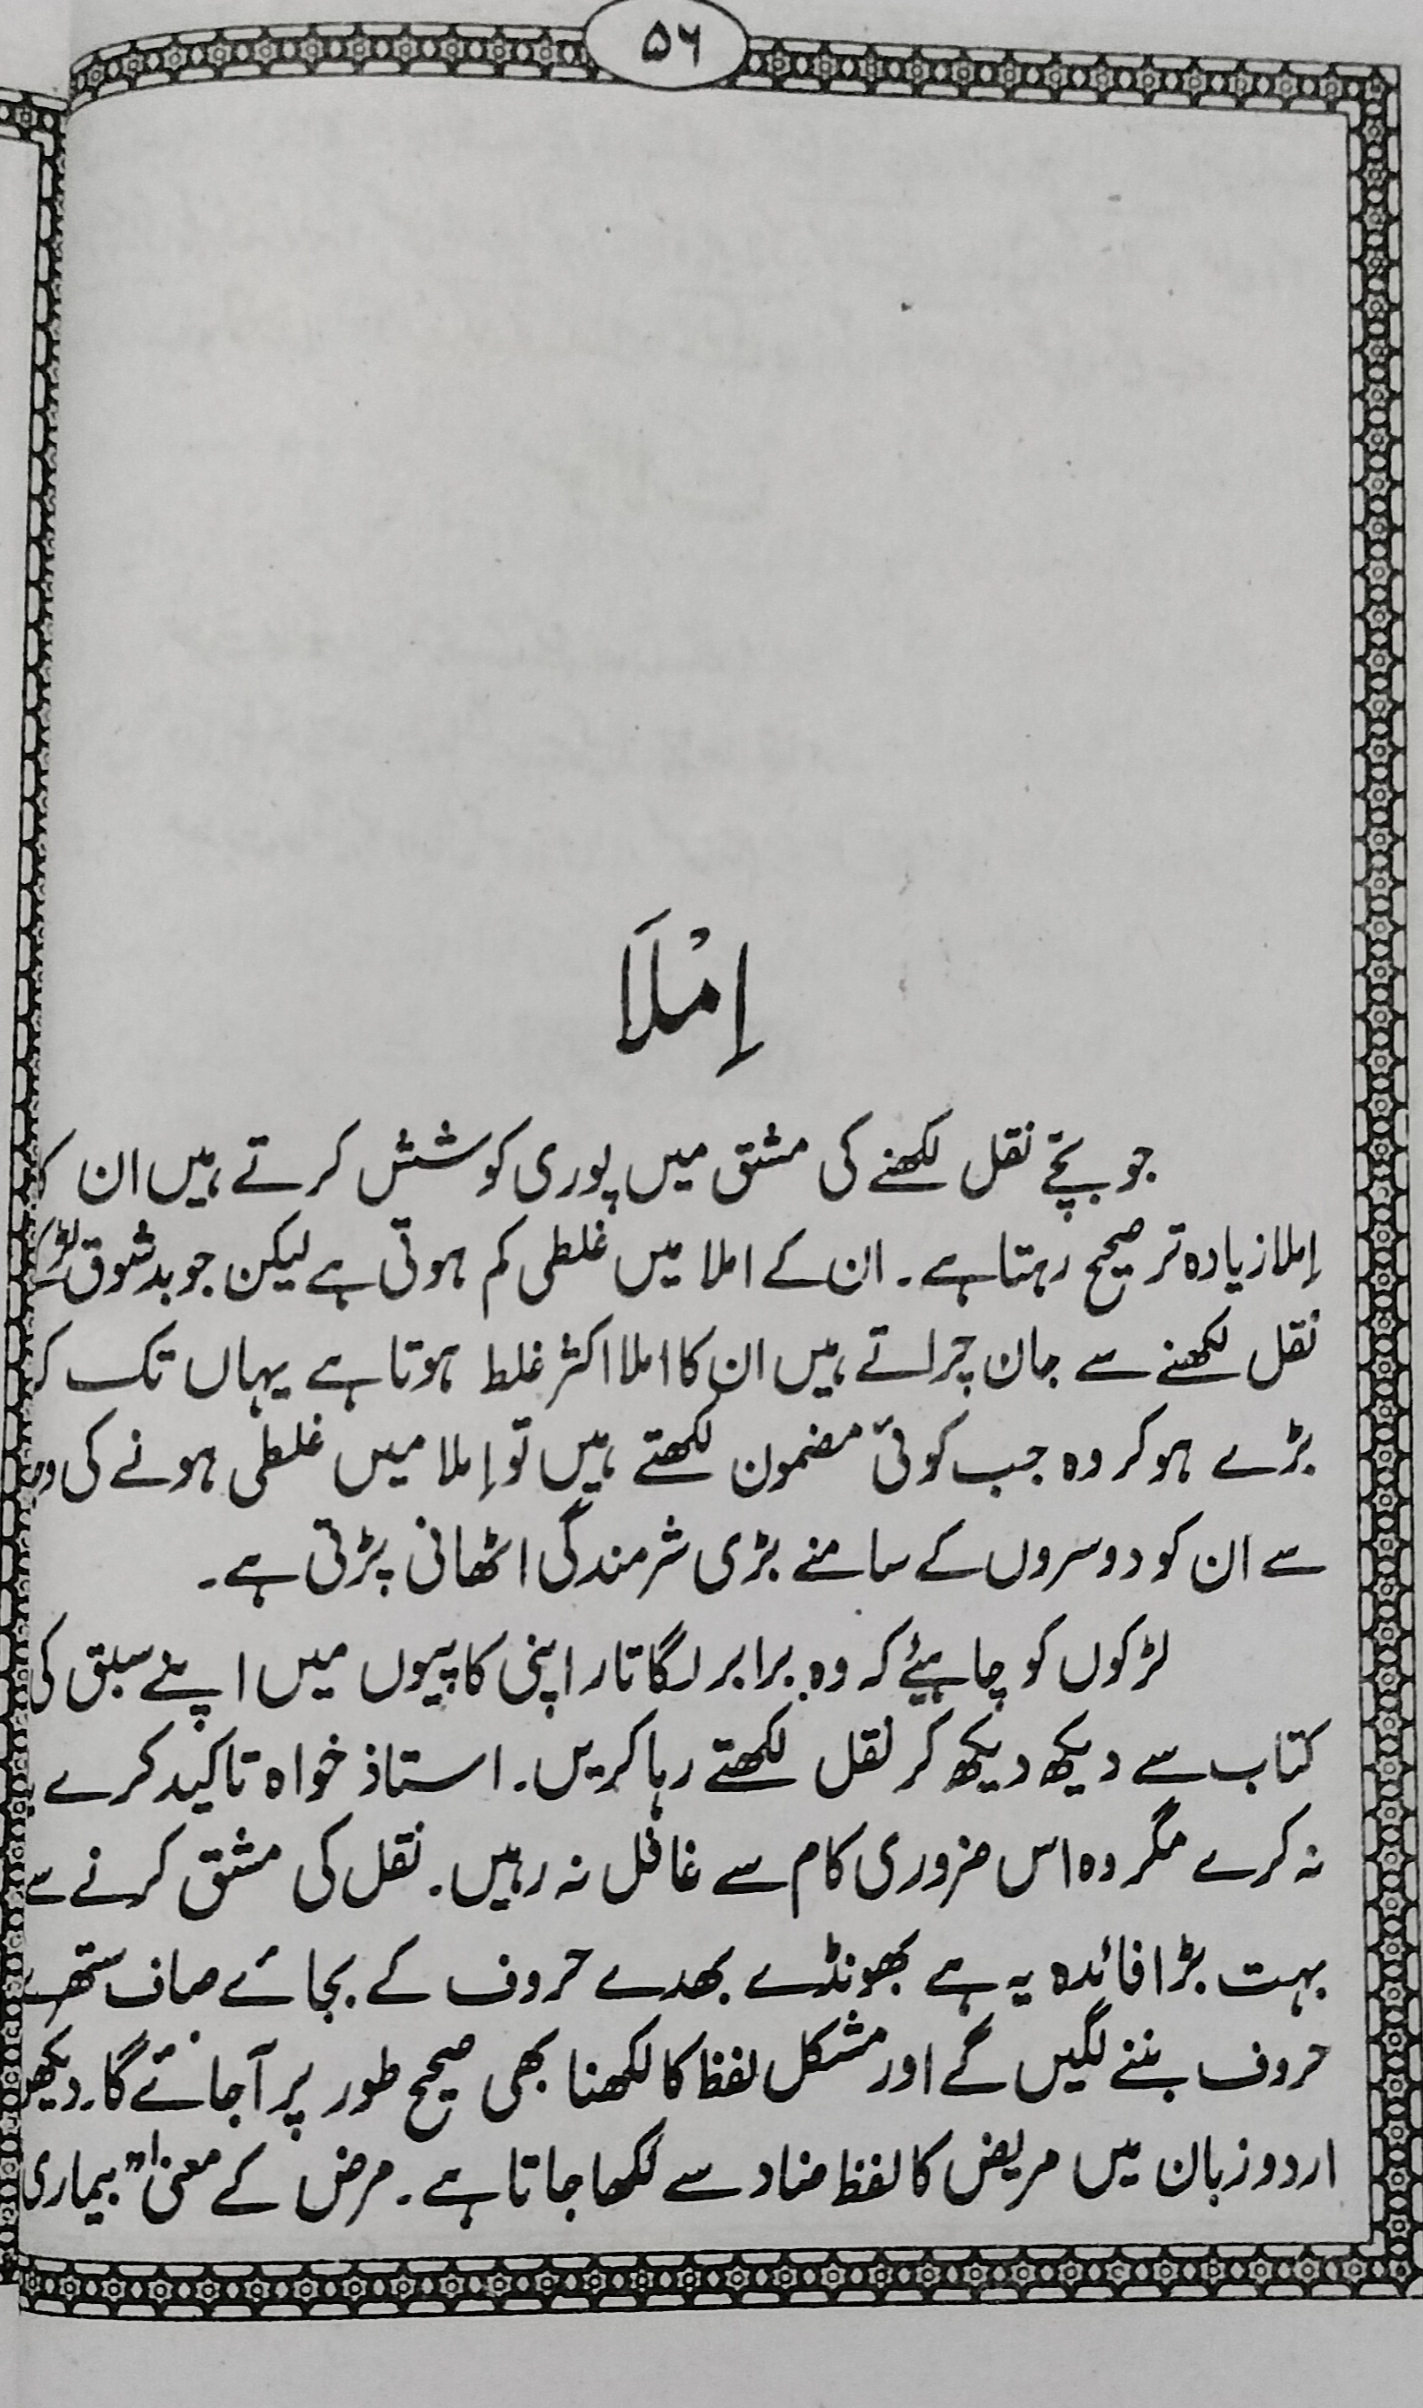 ۵۶
اِمْلَا
جو بچّے نقل لکھنے کی مشق میں پوری کوشش کرتے ہیں ان کا
اِملا زیادہ تر صحیح رہتا ہے۔ ان کے املا میں غلطی کم ہوتی ہے لیکن جو بدشوق لڑکے
نقل لکھنے سے جان چراتے ہیں ان کا املا اکثر غلط ہوتا ہے یہاں تک کہ
بڑے ہو کر وہ جب کوئی مضمون لکھتے ہیں تو اِملا میں غلطی ہونے کی
سے ان کو دوسروں کے سامنے بڑی شرمندگی اٹھانی پڑتی ہے۔
لڑکوں کو چاہیئے کہ وہ برابر لگاتار اپنی کاپیوں میں اپنے سبق کی
کتاب سے دیکھ دیکھ کر نقل لکھتے رہا کریں۔ استاذ خواہ تاکید کرے
نہ کرے مگر وہ اس ضروری کام سے غافل نہ رہیں۔ نقل کی مشق کرنے سے
بہت بڑا فائدہ یہ ہے بھونڈے بھدے حروف کے بجائے صاف ستھرے
حروف بننے لگیں گے اور مشکل لفظ کا لکھنا بھی صحیح طور پر آجائے گا۔ دیکھو
اردو زبان میں مریض کا لفظ ضاد سے لکھا جاتا ہے۔ مرض کے معنیٰ "بیماری